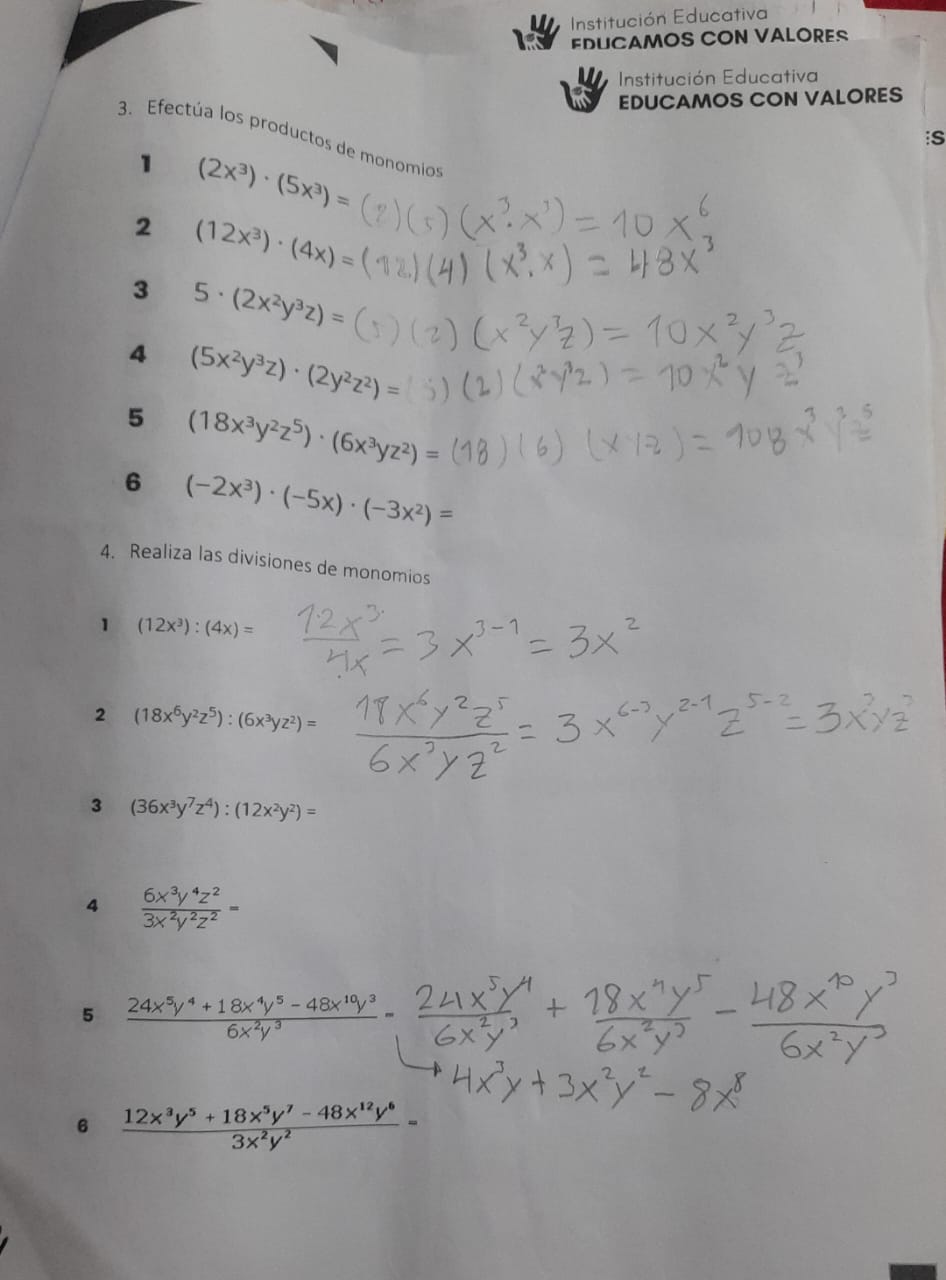 Institución Educativa
EDUCAMOS CON VALORES
Institución Educativa
EDUCAMOS CON VALORES
ES
3. Efectúa los productos de monomios
1 (2x³) · (5x³) = (2)(5)(x³·x³) = 10x⁶
2 (12x³) · (4x) = (12)(4)(x³.x) = 48x³
3 5 · (2x²y³z) = (5)(2)(x²y³z) = 10x²y³z
4 (5x²y³z) · (2y²z²) = (5)(2)(x²y³z) = 10x²y z³
5 (18x³y²z⁵) · (6x³yz²) = (18)(6) (xyz) = 108x³y²z⁵
6 (−2x³) · (−5x) · (−3x²) =
4. Realiza las divisiones de monomios
1 (12x³) : (4x) = 12x³/4x = 3x³⁻¹ = 3x²
2 (18x⁶y²z⁵) : (6x³yz²) = 18x⁶y²z⁵/6x³yz² = 3x⁶⁻³y²⁻¹z⁵⁻² = 3x³yz³
3 (36x³y⁷z⁴) : (12x²y²) =
4 6x³y⁴z²/3x²y²z² =
5 24x⁵y⁴ + 18x⁴y⁵ − 48x¹⁰y³/6x²y³ = 24x⁵y⁴/6x²y³ + 18x⁴y⁵/6x²y³ − 48x¹⁰y³/6x²y³
→ 4x³y + 3x²y² − 8x⁸
6 12x³y⁵ + 18x⁵y⁷ − 48x¹²y⁶/3x²y² =